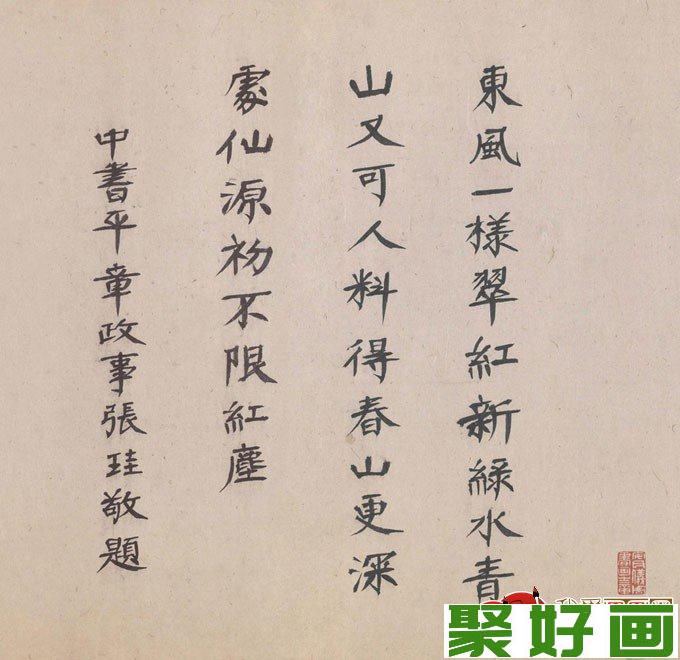 東風一様翠紅新綠水青
山又可人料得春山更深
處仙源初不限紅塵
中書平章政事張珪敬題
聚好画